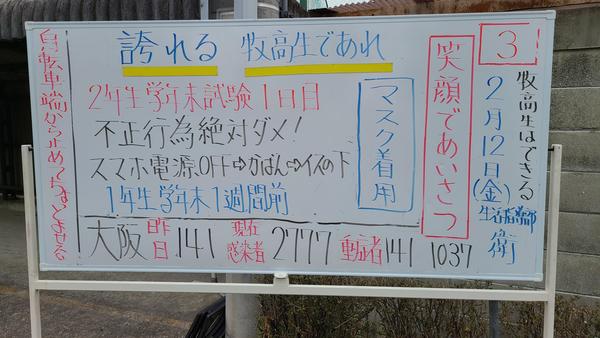 誇れる 牧高生であれ
3
牧高生はできる
2月12日(金)
生活指導部
衛
笑顔であいさつ
マスク着用
2年生学年末試験1日目
不正行為絶対ダメ!
スマホ電源OFF⇨かばん⇨イスの下
1年生学年末1週間前
大阪 昨日 141 現在感染者 2777 重症者 141 1037
自転車端から止めて